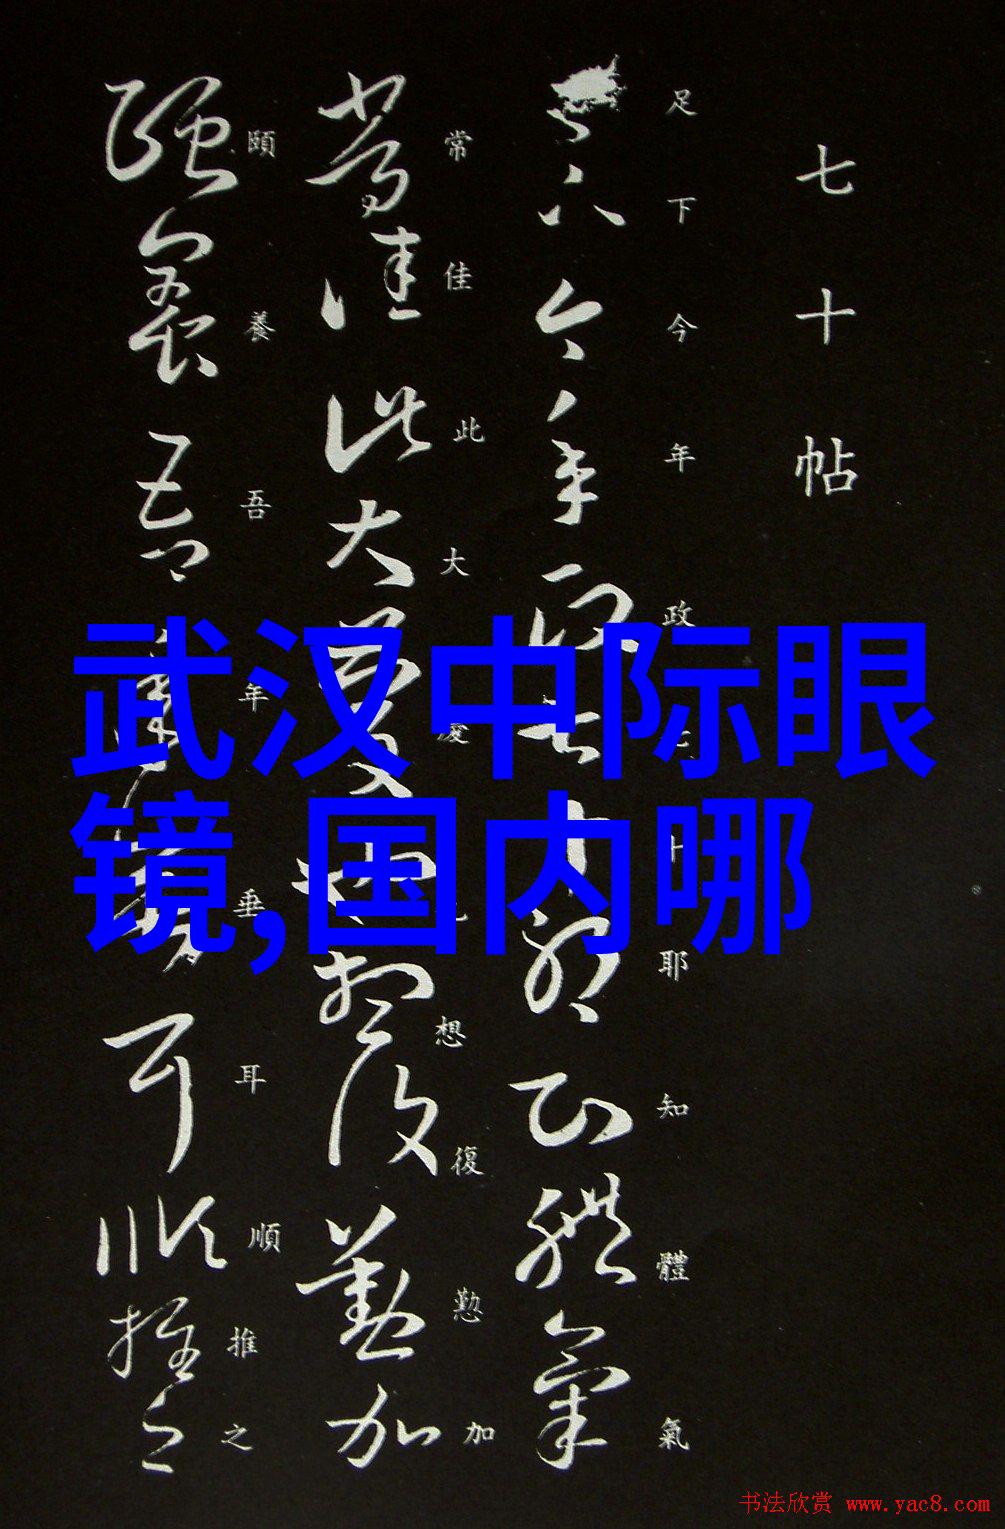 七十帖
足下今年政七十耶知體氣
常佳此大慶也想復懃加
頤養吾年垂耳順推之
武汉中际眼
镜,国内哪
书法欣赏 www.yac8.com